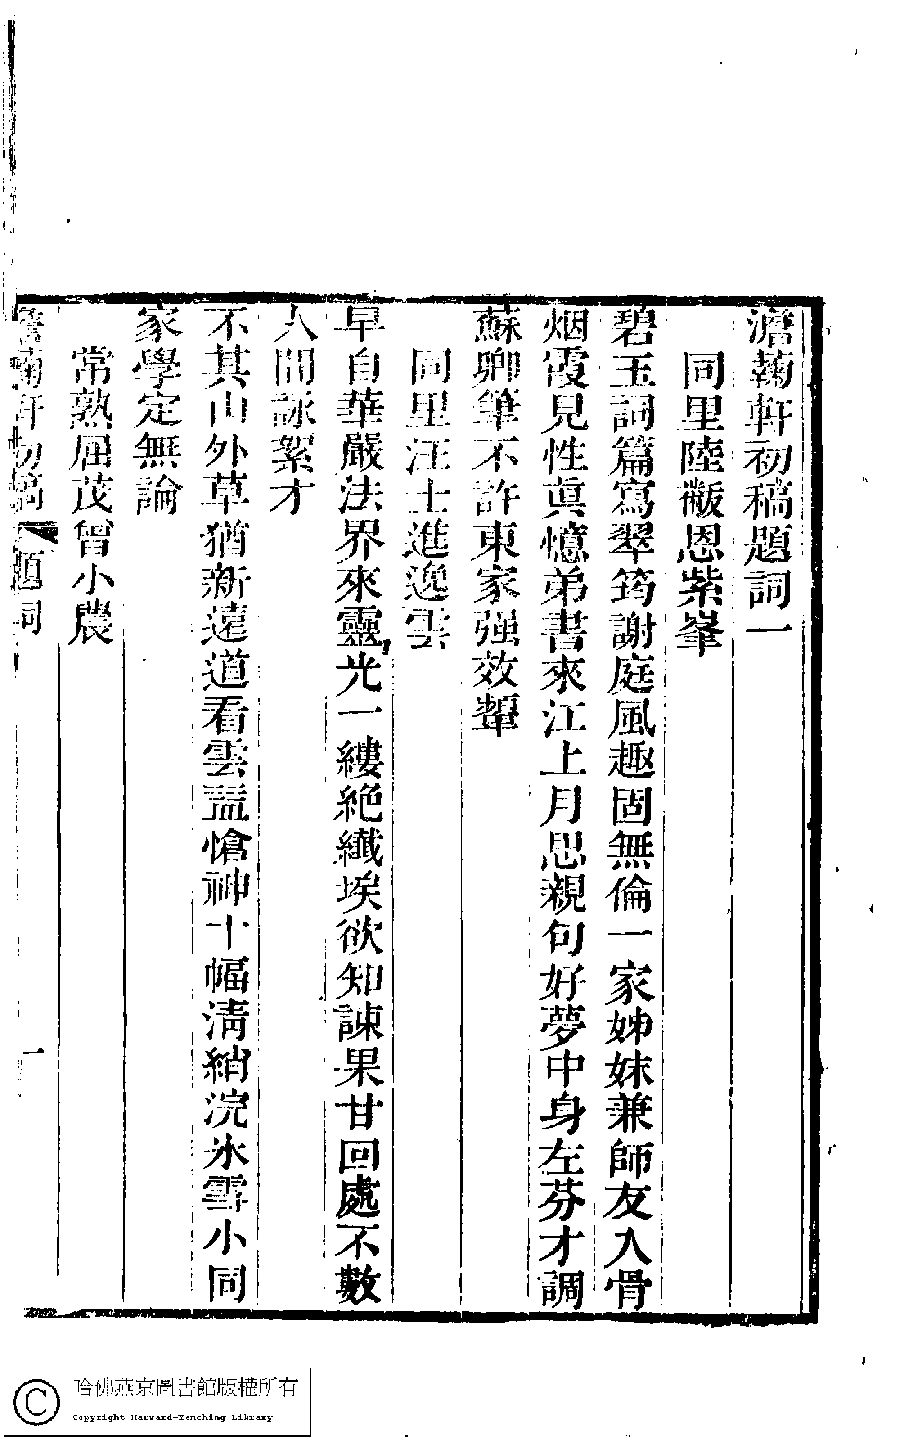 澹蘜軒初稿題詞一
同里陸黻恩紫峯
碧玉詞篇寫翠筠謝庭風趣固無倫一家姊妹兼師友入骨
烟霞見性眞憶弟書來江上月思親句好夢中身左芬才調
蘇卿筆不許東家强效顰
同里汪士進逸雲
早自華嚴法界來靈光一縷絶纖埃欲知諫果甘回處不數
人間詠絮才
不其山外草猶新遠道看雲益愴神十幅淸綃浣冰雪小同
家學定無論
常熟屈茂曾小農
澹蘜軒初稿 題詞 一
哈佛燕京圖書館版權所有
Copyright Harvard-Yenching Library